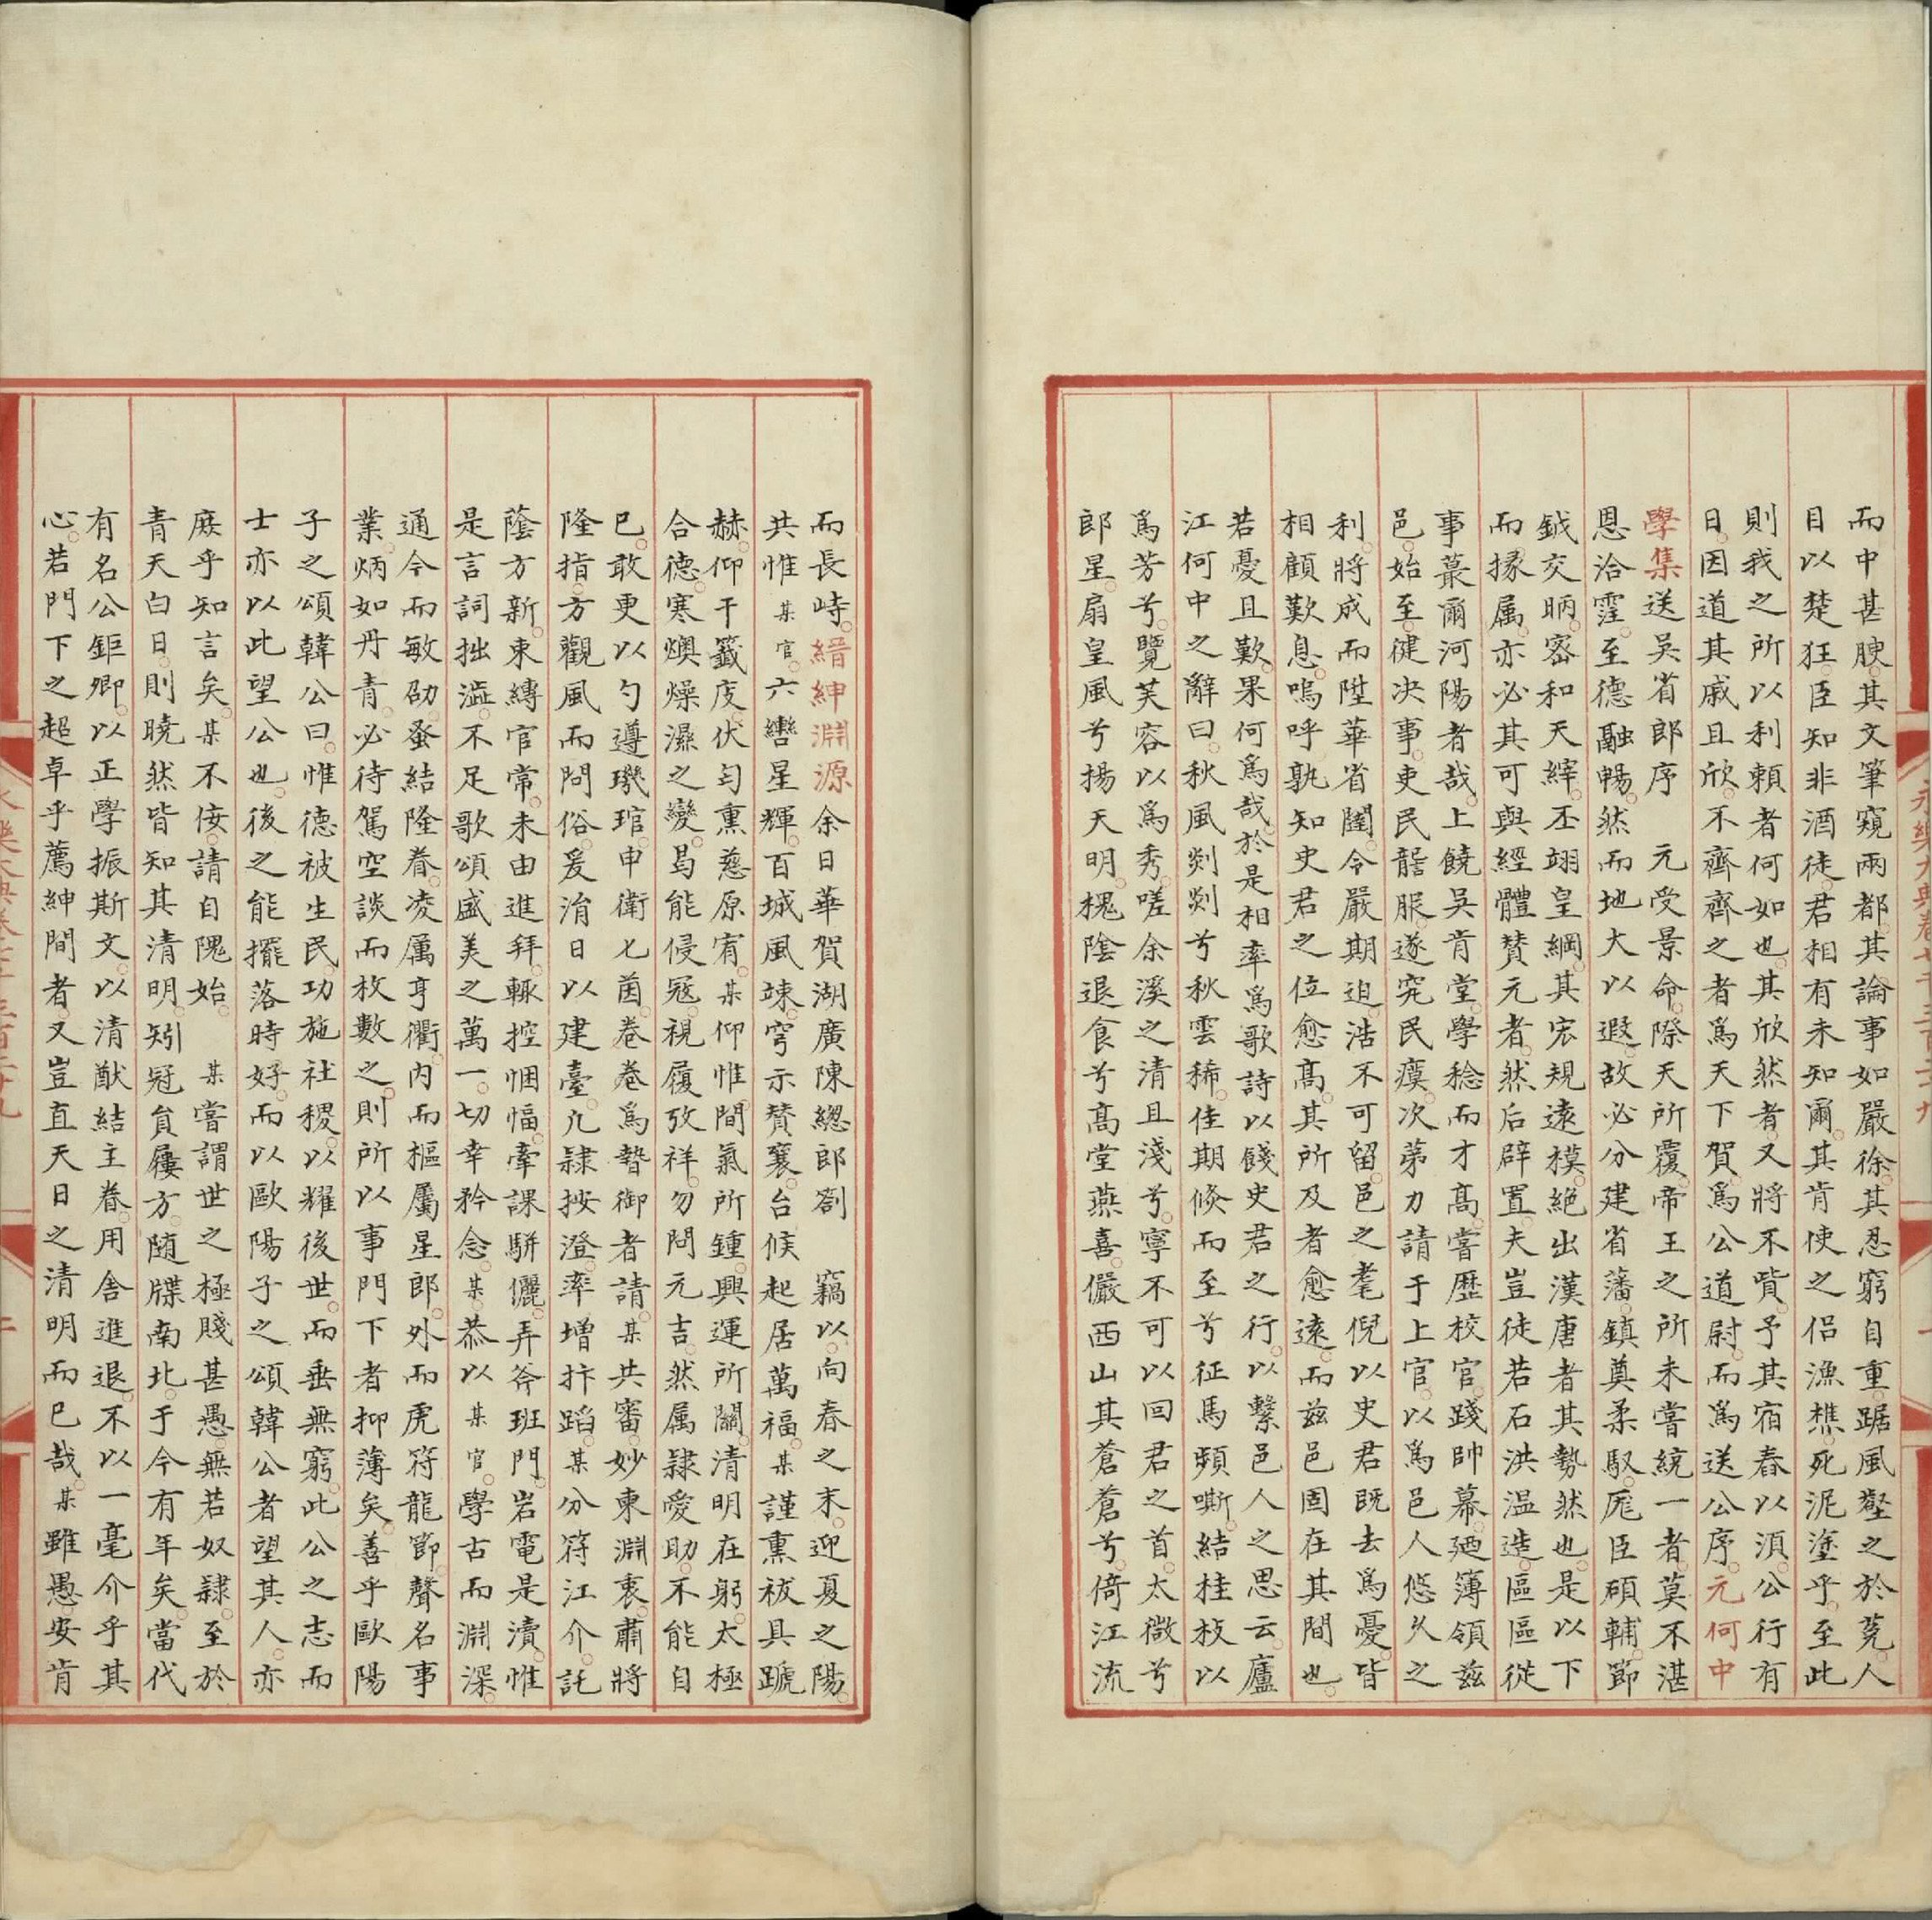 而中甚腴其文筆窺兩都其論事如嚴徐其忍窮自重踞風壑之於莬人
目以楚狂臣知非酒徒君相有未知爾其肯使之侶漁樵死泥塗乎至此
則我之所以利賴者何如也其欣然者又將不貲予其宿舂以湏公行有
日因道其戚且欣不齊齊之者爲天下賀爲公道尉而爲送公序元何中
學集送吳省郎序 元受景命際天所覆帝王之所未嘗統一者莫不湛
恩洽霔至德融暢然而地大以遐故必分建省藩鎮奠柔馭厖臣碩輔節
鉞交昞宻和天繂丕翊皇綱其宏規遠模絶出漢唐者其勢然也是以下
而掾属亦必其可與經體賛元者然后辟置夫豈徒若石洪温造區區從
事蕞爾河陽者哉上饒吳肯堂學稔而才髙嘗歷校官踐帥幕廼簿領兹
邑始至徤决事吏民讋服遂究民瘼次苐力請于上官以爲邑人悠久之
利將成而陞華省閫令嚴期迫浩不可留邑之耄倪以史君既去爲憂皆
相顧歎息嗚呼孰知史君之位愈髙其所及者愈逺而兹邑固在其間也
若憂且歎果何爲哉於是相率爲歌詩以餞史君之行以繫邑人之思云廬
江何中之辭曰秋風剡剡兮秋雲稀佳期倏而至兮征馬頻嘶結桂枝以
爲芳兮覽芙容以爲秀嗟余溪之清且淺兮寧不可以回君之首太微兮
郎星扇皇風兮揚天明槐隂退食兮髙堂燕喜儼西山其蒼蒼兮倚江流
而長峙縉紳淵源余日華賀湖廣陳緫郎劄 竊以向春之末迎夏之陽
共惟某官六轡星輝百城風竦穹示賛襄台候起居萬福某謹熏祓具蹏
赫仰干籤庋伏匄熏慈原宥某仰惟間氣所鍾興運所關清明在躬太極
合德寒燠燥濕之變曷能侵冦視履攷祥勿問元吉然属隷愛助不能自
已敢更以勺遵璣琯申衛匕茵卷卷爲暬御者請某共審妙柬淵衷肅將
隆指方觀風而問俗爰涓日以建臺凢隷按澄率增抃蹈某分符江介託
䕃方新束縳官常未由進拜輙控悃愊牽課駢儷弄斧班門岩電是瀆惟
是言詞拙澁不足歌頌盛美之萬一切幸矜念某恭以某官學古而淵深
通今而敏劭蚤結隆眷凌属亨衢内而樞属星郎外而虎符龍節聲名事
業炳如丹青必待駕空談而枚數之則所以事門下者抑薄矣善乎歐陽
子之頌韓公曰惟德被生民功施社稷以耀後世而垂無窮此公之志而
士亦以此望公也後之能擺落時好而以歐陽子之頌韓公者望其人亦
庶乎知言矣某不佞請自隗始 某嘗謂世之極賤甚愚無若奴隷至於
青天白日則曉然皆知其清明矧冠負屨方随牒南北于今有年矣當代
有名公鉅卿以正學振斯文以清猷結主眷用舍進退不以一毫介乎其
心若門下之超卓乎薦紳間者又豈直天日之清明而已哉某雖愚安肯